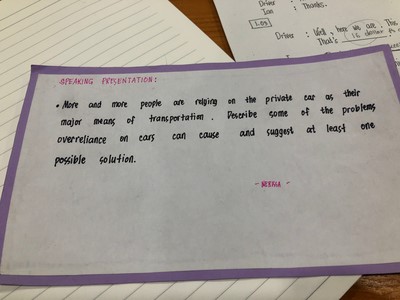 Driver :
Ian : Thanks.
1.09
Driver : Well, here we are. This
That's
SPEAKING PRESENTATION:
• More and more people are relying on the private car as their
major means of transportation. Describe some of the problems
overreliance on cars can cause and suggest at least one
possible solution.